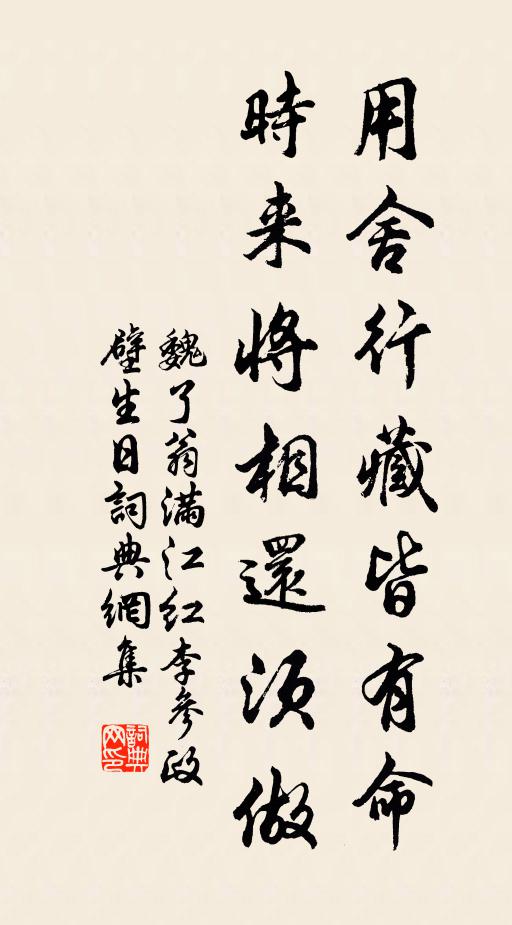 用舍行藏皆有命
時来將相還須做
魏了翁滿江紅李參政
壁生日詞典網集
詞典
网印